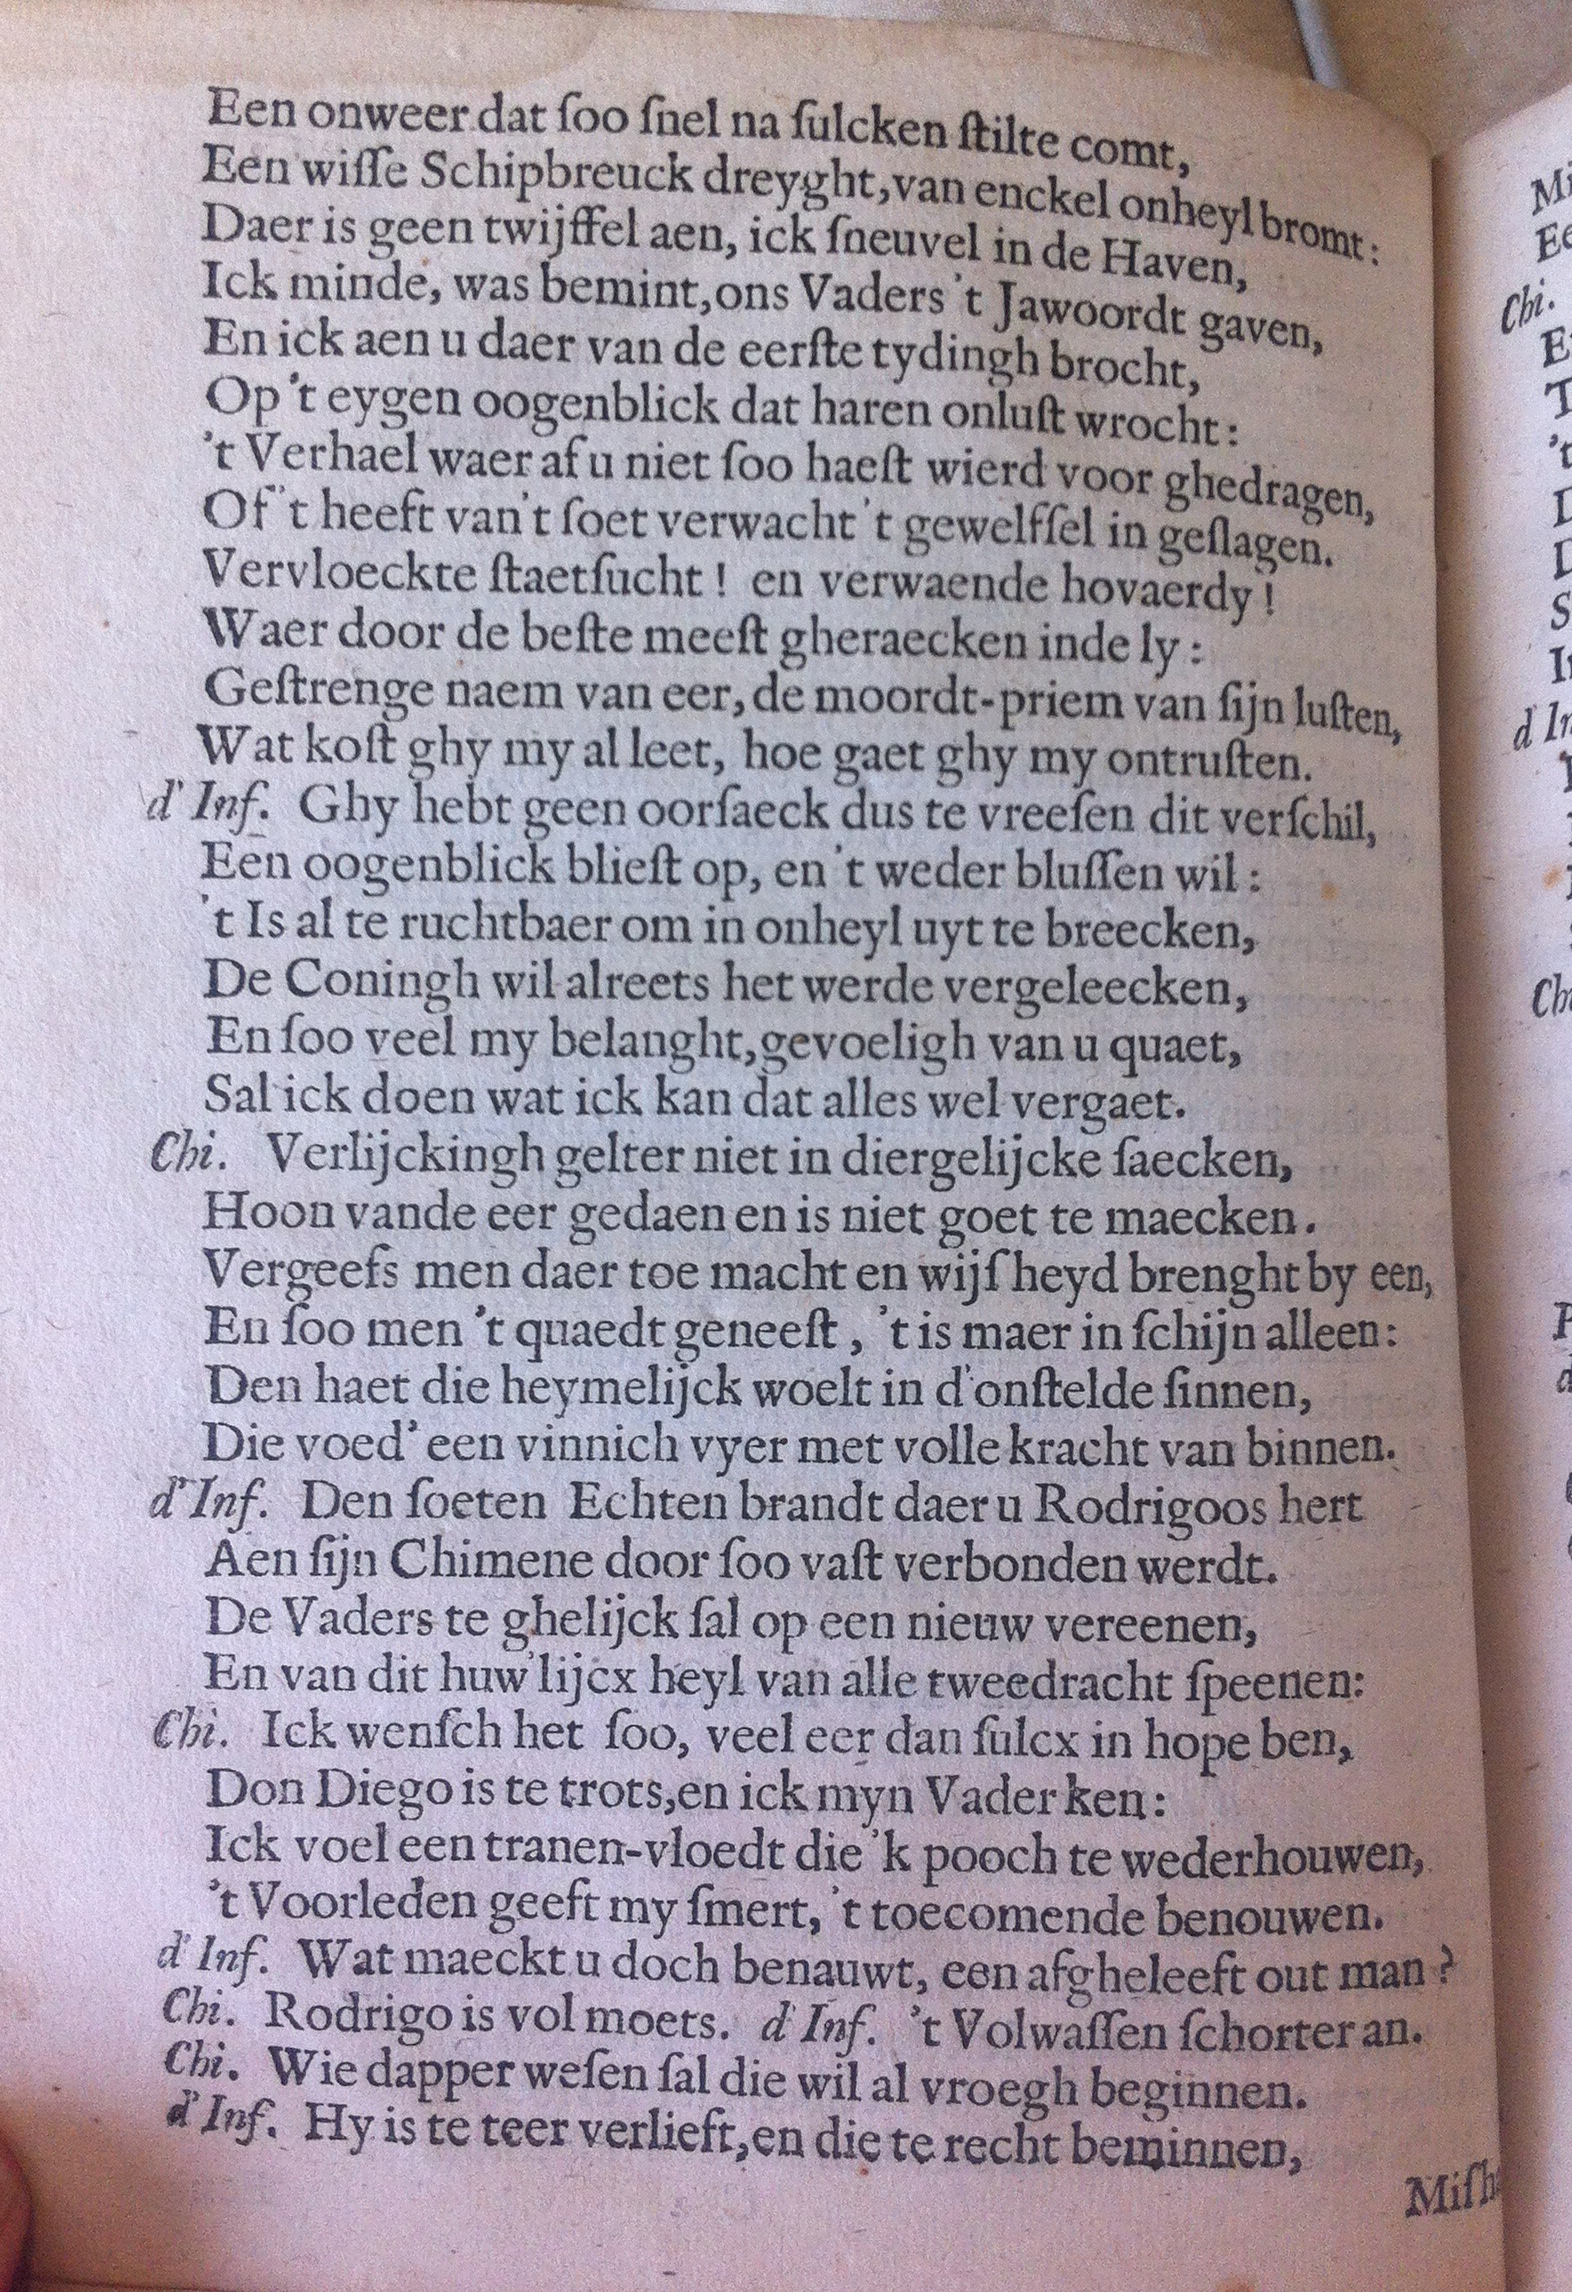 Een onweer dat ſoo ſnel na ſulcken ſtilte comt,
Een wiſſe Schipbreuck dreyght, van enckel onheyl bromt:
Daer is geen twijffel aen, ick ſneuvel in de Haven,
Ick minde, was bemint, ons Vaders 't Jawoordt gaven,
En ick aen u daer van de eerſte tydingh brocht,
Op 't eygen oogenblick dat haren onluſt wrocht:
't Verhael waer af u niet ſoo haeſt wierd voor ghedragen,
Of 't heeft van 't ſoet verwacht 't gewelfſel in geſlagen.
Vervloeckte ſtaetſucht! en verwaende hovaerdy!
Waer door de beſte meeſt gheraecken inde ly:
Geſtrenge naem van eer, de moordt-priem van ſijn luſten,
Wat koſt ghy my al leet, hoe gaet ghy my ontruſten.
d' Inf. Ghy hebt geen oorſaeck dus te vreeſen dit verſchil,
Een oogenblick blieſt op, en 't weder bluſſen wil:
't Is al te ruchtbaer om in onheyl uyt te breecken,
De Coningh wil alreets het werde vergeleecken,
En ſoo veel my belanght, gevoeligh van u quaet,
Sal ick doen wat ick kan dat alles wel vergaet.
Chi. Verlijckingh gelter niet in diergelijcke ſaecken,
Hoon vande eer gedaen en is niet goet te maecken.
Vergeefs men daer toe macht en wijſheyd brenght by een,
En ſoo men 't quaedt geneeſt, 't is maer in ſchijn alleen:
Den haet die heymelijck woelt in d'onſtelde ſinnen,
Die voed' een vinnich vyer met volle kracht van binnen.
d' Inf. Den ſoeten Echten brandt daer u Rodrigoos hert
Aen ſijn Chimene door ſoo vaſt verbonden werdt.
De Vaders te ghelijck ſal op een nieuw vereenen,
En van dit huw'lijcx heyl van alle tweedracht ſpeenen:
Chi. Ick wenſch het ſoo, veel eer dan ſulcx in hope ben,
Don Diego is te trots, en ick myn Vader ken:
Ick voel een tranen-vloedt die 'k pooch te wederhouwen,
't Voorleden geeft my ſmert, 't toecomende benouwen.
d' Inf. Wat maeckt u doch benauwt, een afgheleeft out man?
Chi. Rodrigo is vol moets. d' Inf. 't Volwaſſen ſchorter an.
Chi. Wie dapper weſen ſal die wil al vroegh beginnen.
d' Inf. Hy is te teer verlieft, en die te recht beminnen,